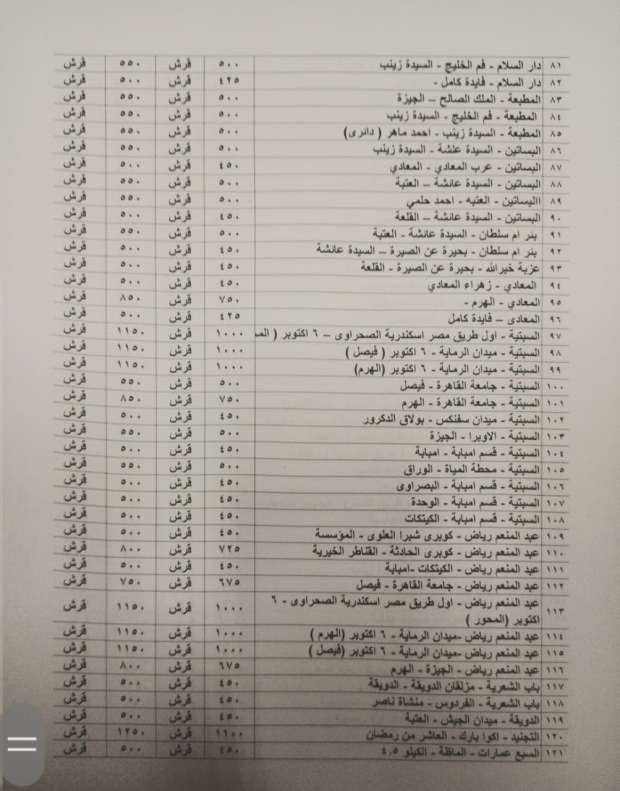 ٨١ دار السلام - فم الخليج - السيدة زينب ٥٠٠ قرش ٥٥٠ قرش
٨٢ دار السلام - فايدة كامل - ٤٢٥ قرش ٥٠٠ قرش
٨٣ المطبعة - الملك الصالح – الجيزة ٥٠٠ قرش ٥٥٠ قرش
٨٤ المطبعة - فم الخليج - السيدة زينب ٥٠٠ قرش ٥٥٠ قرش
٨٥ المطبعة - السيدة زينب - احمد ماهر ( دائرى) ٥٠٠ قرش ٥٥٠ قرش
٨٦ البساتين - السيدة عئشة - السيدة زينب ٥٠٠ قرش ٥٥٠ قرش
٨٧ البساتين - عرب المعادي - المعادي ٤٥٠ قرش ٥٠٠ قرش
٨٨ البساتين - السيدة عائشة – العتبة ٥٠٠ قرش ٥٥٠ قرش
٨٩ االبساتين - العتبه - احمد حلمي ٥٠٠ قرش ٥٥٠ قرش
٩٠ البساتين - السيدة عائشة – القلعة ٤٥٠ قرش ٥٠٠ قرش
٩١ بئر ام سلطان - السيدة عائشة - العتبة ٥٠٠ قرش ٥٥٠ قرش
٩٢ بئر ام سلطان - بحيرة عن الصيرة – السيدة عائشة ٤٥٠ قرش ٥٠٠ قرش
٩٣ عزبة خيرالله - بحيرة عن الصيرة - القلعة ٤٥٠ قرش ٥٠٠ قرش
٩٤ المعادي - زهراء المعادي ٤٥٠ قرش ٥٠٠ قرش
٩٥ المعادي - الهرم - ٧٥٠ قرش ٨٥٠ قرش
٩٦ المعادى – فايدة كامل ٤٢٥ قرش ٥٠٠ قرش
٩٧ السبتية - اول طريق مصر اسكندرية الصحراوى – ٦ اكتوبر ( ١٠٠٠ قرش ١١٥٠ قرش
٩٨ السبتية - ميدان الرماية - ٦ اكتوبر ( فيصل ) ١٠٠٠ قرش ١١٥٠ قرش
٩٩ السبتية - ميدان الرماية - ٦ اكتوبر (الهرم) ١٠٠٠ قرش ١١٥٠ قرش
١٠٠ السبتية - جامعة القاهرة - فيصل ٥٠٠ قرش ٥٥٠ قرش
١٠١ السبتية - جامعة القاهرة - الهرم ٧٥٠ قرش ٨٥٠ قرش
١٠٢ السبتية - ميدان سفنكس - بولاق الدكرور ٤٥٠ قرش ٥٠٠ قرش
١٠٣ السبتية - الاوبرا - الجيزة ٥٠٠ قرش ٥٥٠ قرش
١٠٤ السبتية - قسم امبابة - امبابة ٤٥٠ قرش ٥٠٠ قرش
١٠٥ السبتية - محطة المياة - الوراق ٥٠٠ قرش ٥٥٠ قرش
١٠٦ السبتية - قسم امبابة - البصراوى ٤٥٠ قرش ٥٠٠ قرش
١٠٧ السبتية - قسم امبابة - الوحدة ٤٥٠ قرش ٥٠٠ قرش
١٠٨ السبتية - قسم امبابة - الكيتكات ٤٥٠ قرش ٥٠٠ قرش
١٠٩ عبد المنعم رياض - كوبرى شبرا العلوى - المؤسسة ٤٥٠ قرش ٥٠٠ قرش
١١٠ عبد المنعم رياض - كوبرى الحادثة - القناطر الخيرية ٧٢٥ قرش ٨٠٠ قرش
١١١ عبد المنعم رياض - الكيتكات -امبابة ٤٥٠ قرش ٥٠٠ قرش
١١٢ عبد المنعم رياض - جامعة القاهرة - فيصل ٦٧٥ قرش ٧٥٠ قرش
١١٣ عبد المنعم رياض - اول طريق مصر اسكندرية الصحراوى - ٦
اكتوبر (المحور ) ١٠٠٠ قرش ١١٥٠ قرش
١١٤ عبد المنعم رياض -ميدان الرماية - ٦ اكتوبر (الهرم ) ١٠٠٠ قرش ١١٥٠ قرش
١١٥ عبد المنعم رياض -ميدان الرماية - ٦ اكتوبر (فيصل ) ١٠٠٠ قرش ١١٥٠ قرش
١١٦ عبد المنعم رياض - الجيزة - الهرم ٦٧٥ قرش ٨٠٠ قرش
١١٧ باب الشعرية - مزلقان الدويقة - الدويقة ٤٥٠ قرش ٥٠٠ قرش
١١٨ باب الشعرية - الفردوس - منشاة ناصر ٤٥٠ قرش ٥٠٠ قرش
١١٩ الدويقة - ميدان الجيش - العتبة ٤٥٠ قرش ٥٠٠ قرش
١٢٠ التجنيد - اكوا بارك - العاشر من رمضان ١١٠٠ قرش ١٢٥٠ قرش
١٢١ السبع عمارات - الماظة - الكيلو ٤,٥ ٤٥٠ قرش ٥٠٠ قرش